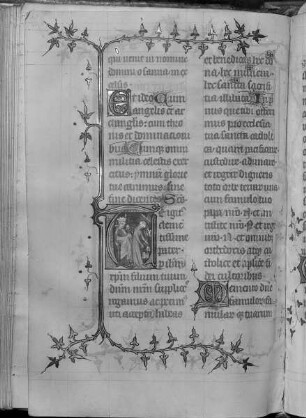 qui venit in nomine
domini osanna in ex
celsis
Et ideo cum
angelis et ar
changelis cum thro
nis et dominationi
bus Cumque omni
militia celestis exer
citus ymnum glorie
tue canimus sine
fine dicentes Sãs
Te igitur
cleme
tissime
pater
per ih̄m
xpm̄ filium tuum
dnm̄ nrm̄ supplices
rogamus ac petim
uti accepta habeas
et benedicas hec do
na hec munera
hec sancta sacrifi
cia illibata In pri
mis que tibi offeri
mus pro ecclesia
tua sancta catholi
ca quam pacificare
custodire adunare
et regere digneris
toto orbe terrarum
una cum famulo tuo
papa nr̄o N et an
tistite nr̄o N et rege
nr̄o N et omnibus
orthodoxis atque ca
tholice et apostolice fi
dei cultoribus
Memento dne
famulorum fa
mularumque tuarum